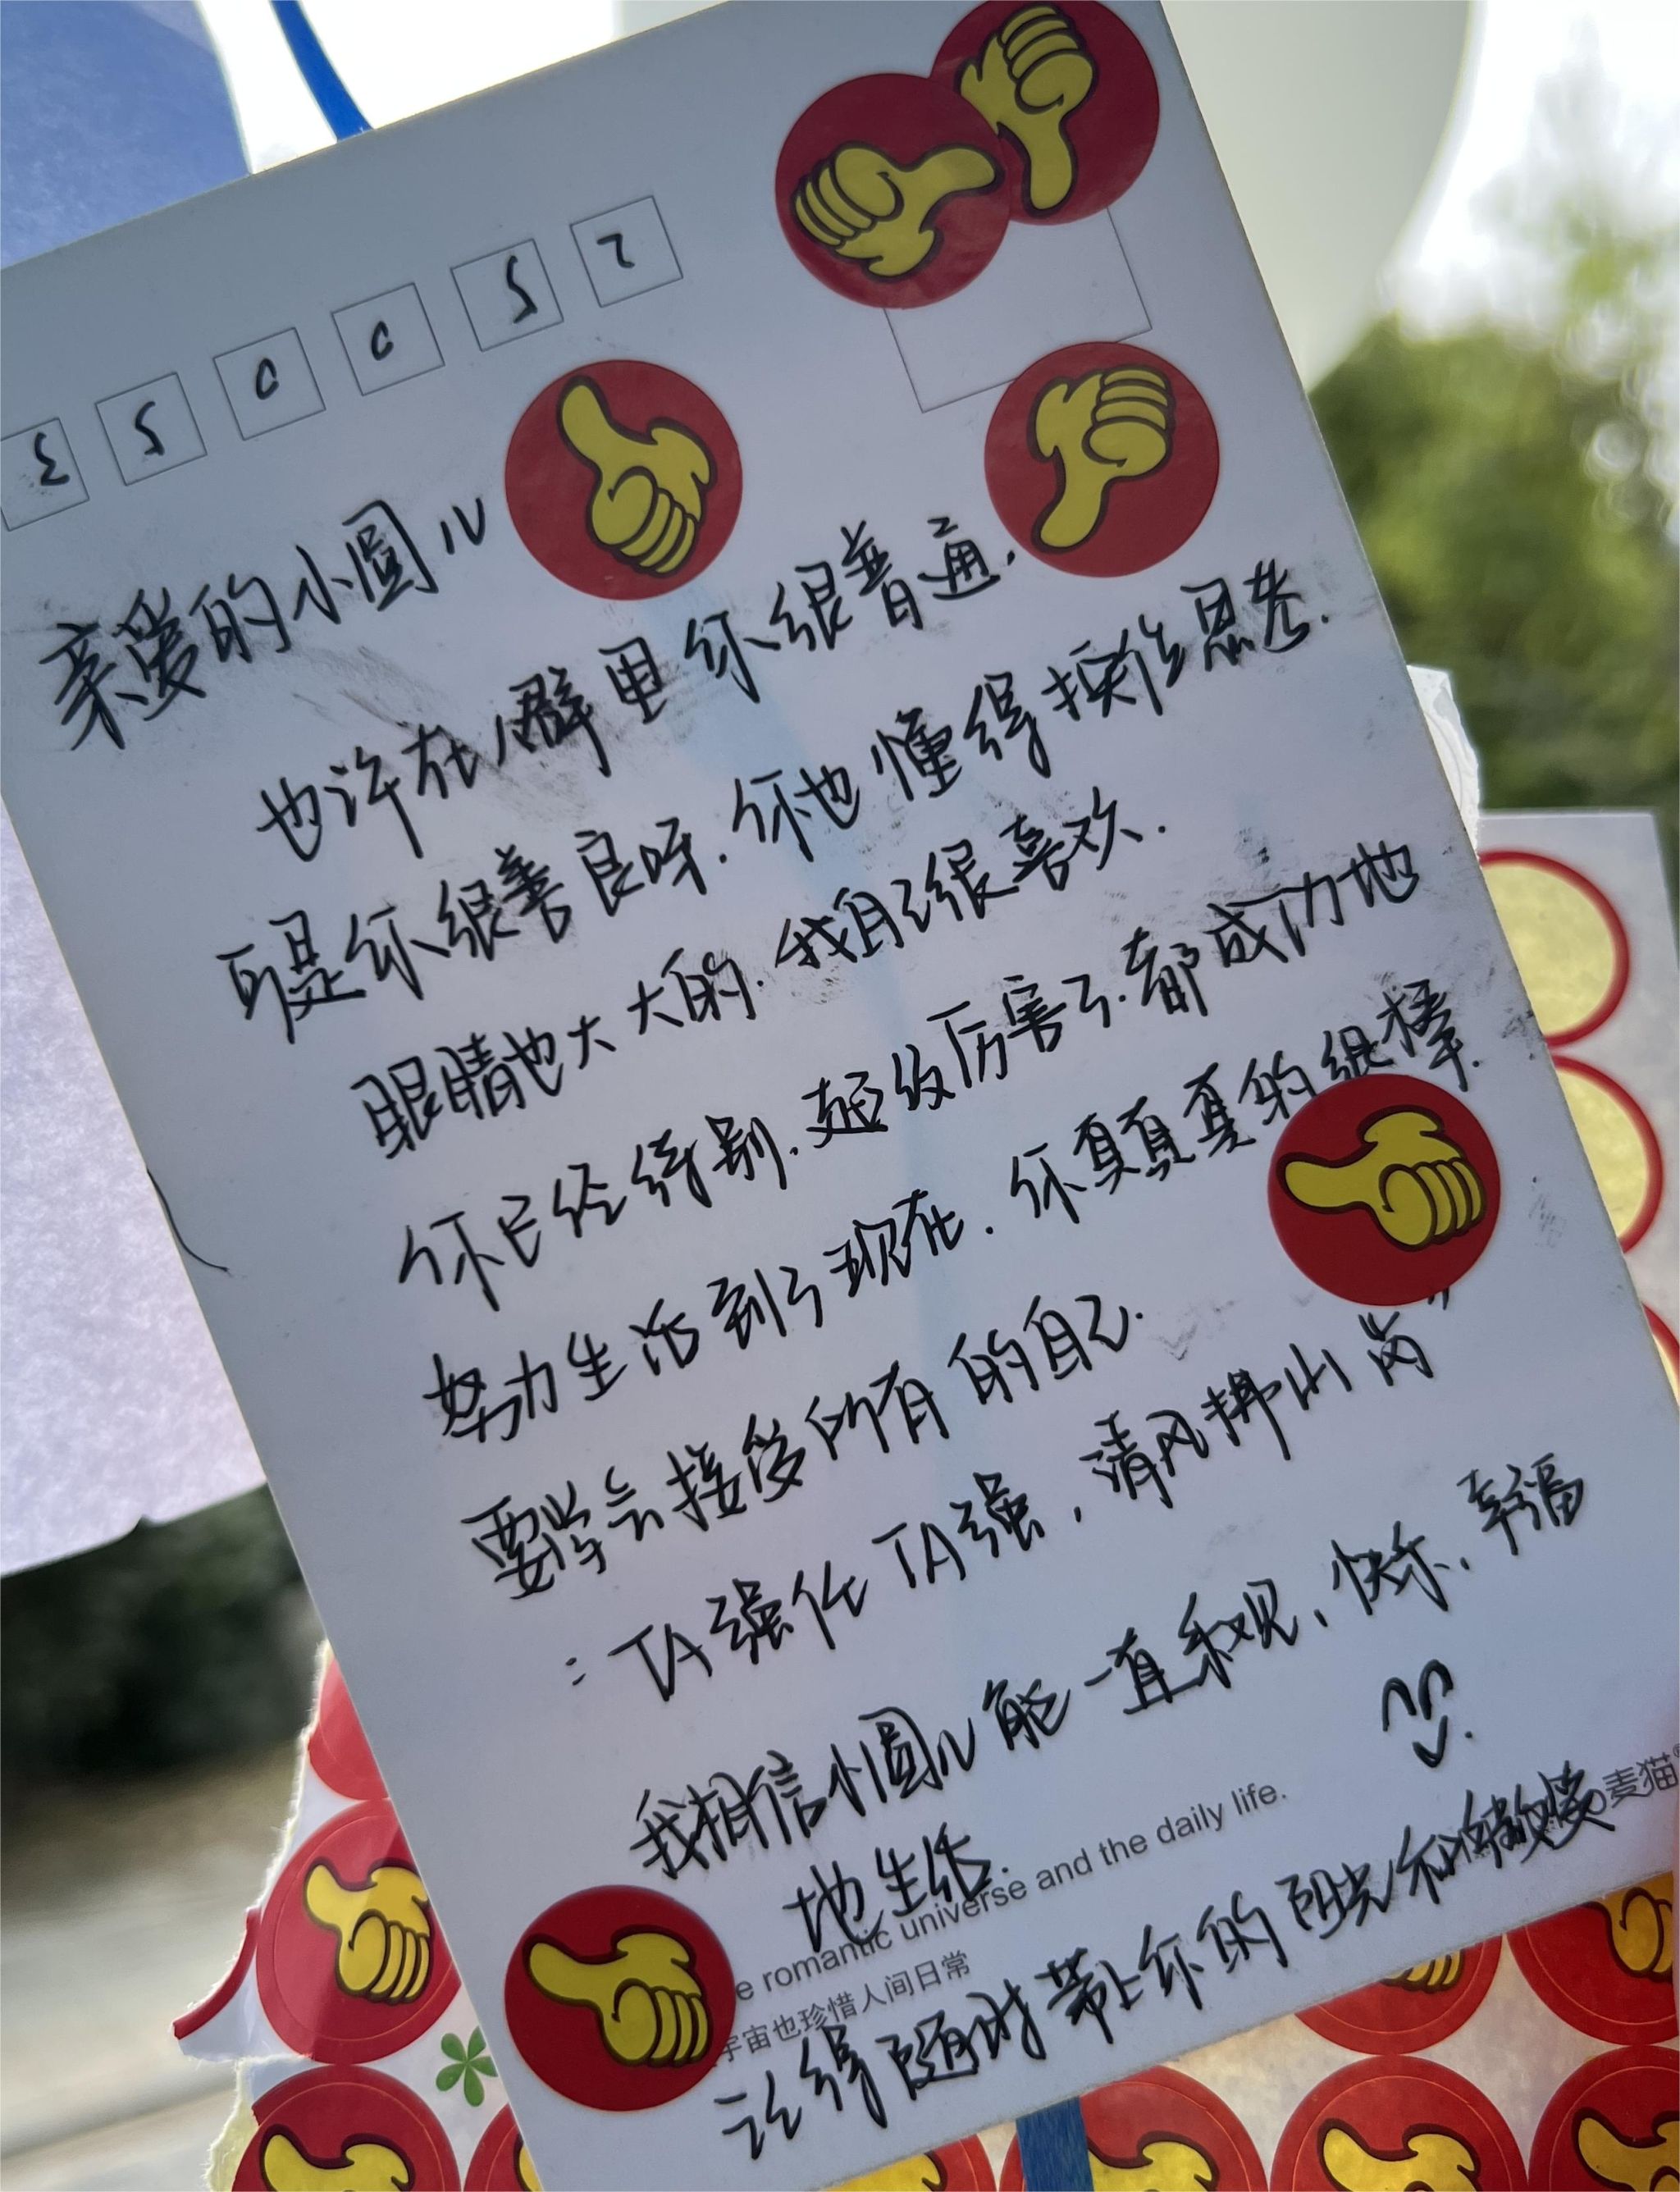 350052
亲爱的小圆儿
也许在人群里你很普通.
可是你很善良呀.你也懂得换位思考.
眼睛也大大的.我自己很喜欢.
你已经特别.超级厉害了.都成功地
努力生活到了现在.你真真真的很棒.
要学会接受所有的自己.
:TA强任TA强,清风拂山岗"
我相信小圆儿能一直乐观、快乐、幸福
地生活.
e romantic universe and the daily life.
宇宙也珍惜人间日常
麦猫
记得随时带上你的阳光和微笑